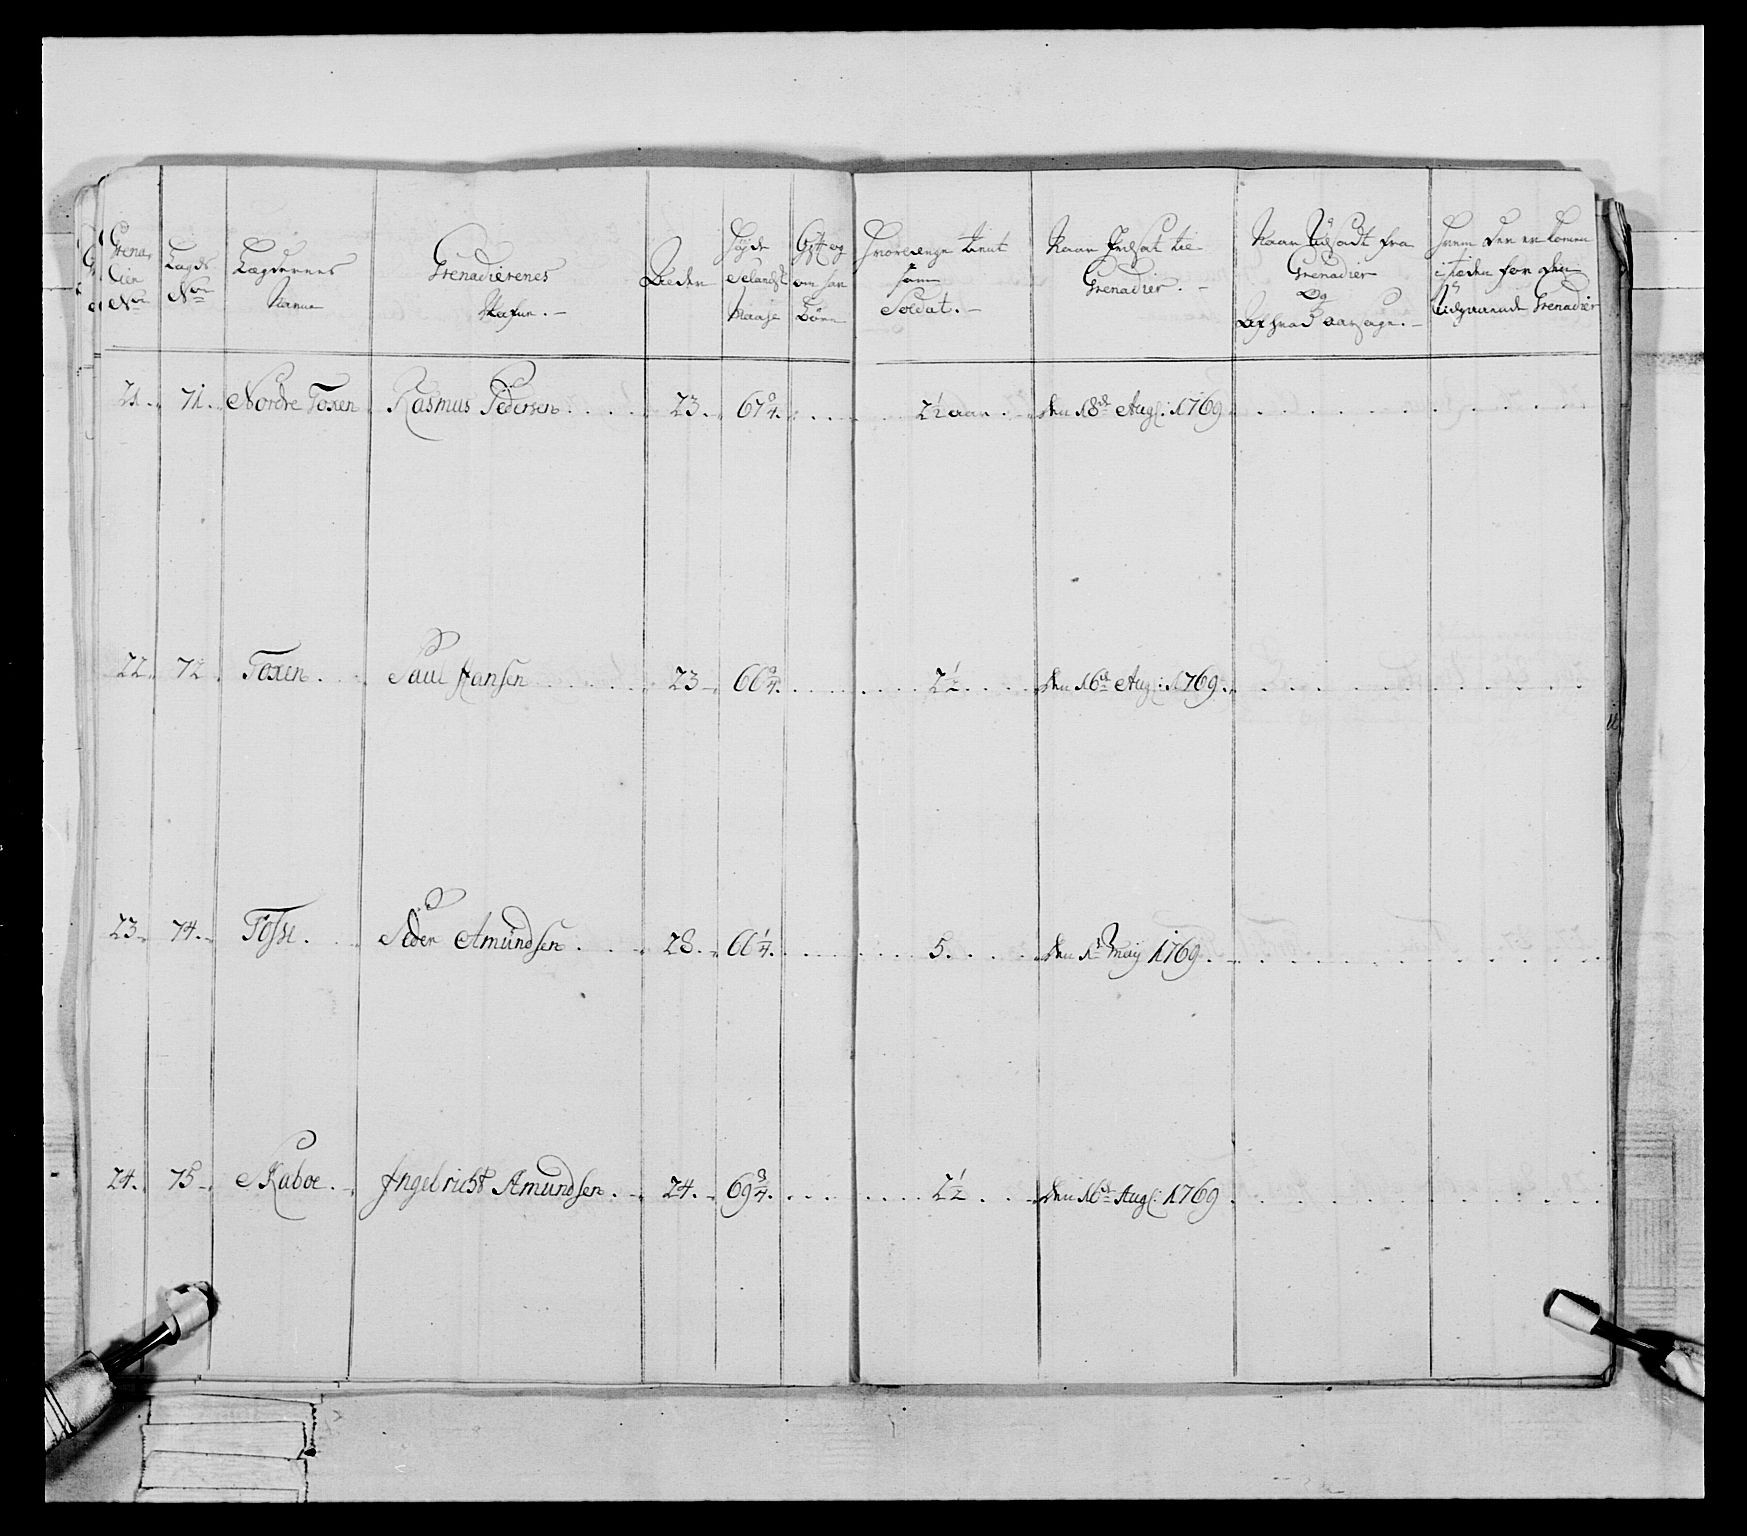 Grena-
dier
No
Lægds
No
Lægdernes
Navne
Grenadierenes
Nafne. —
Alder
Høyde
Selandsk
Maase
Gift og
om har
Børn
Hvorlænge tient
som
Soldat. —
Naar Indsat til
Grenadier. —
Naar Udsadt fra
Grenadier
Og
Af hvad aarsage. —
Hvem der er komen
i stæden for den
Udgaaende Grenadier
21. 71. Nordre Toxen Rasmus Pedersen. 23. 67 3/4. 2 1/2 aar. den 18de Aug: 1769
22. 72 Toxen. Paul Hansen 23 66 3/4. 2 1/2. den 16de Aug: 1769.
23. 74. Fosse. Peder Amundsen. 28. 66 1/4. 5. den 1te May 1769.
24. 75 Skaboe. Ingebricht Amundsen. 24. 69 3/4. 2 1/2. den 16de Aug: 1769